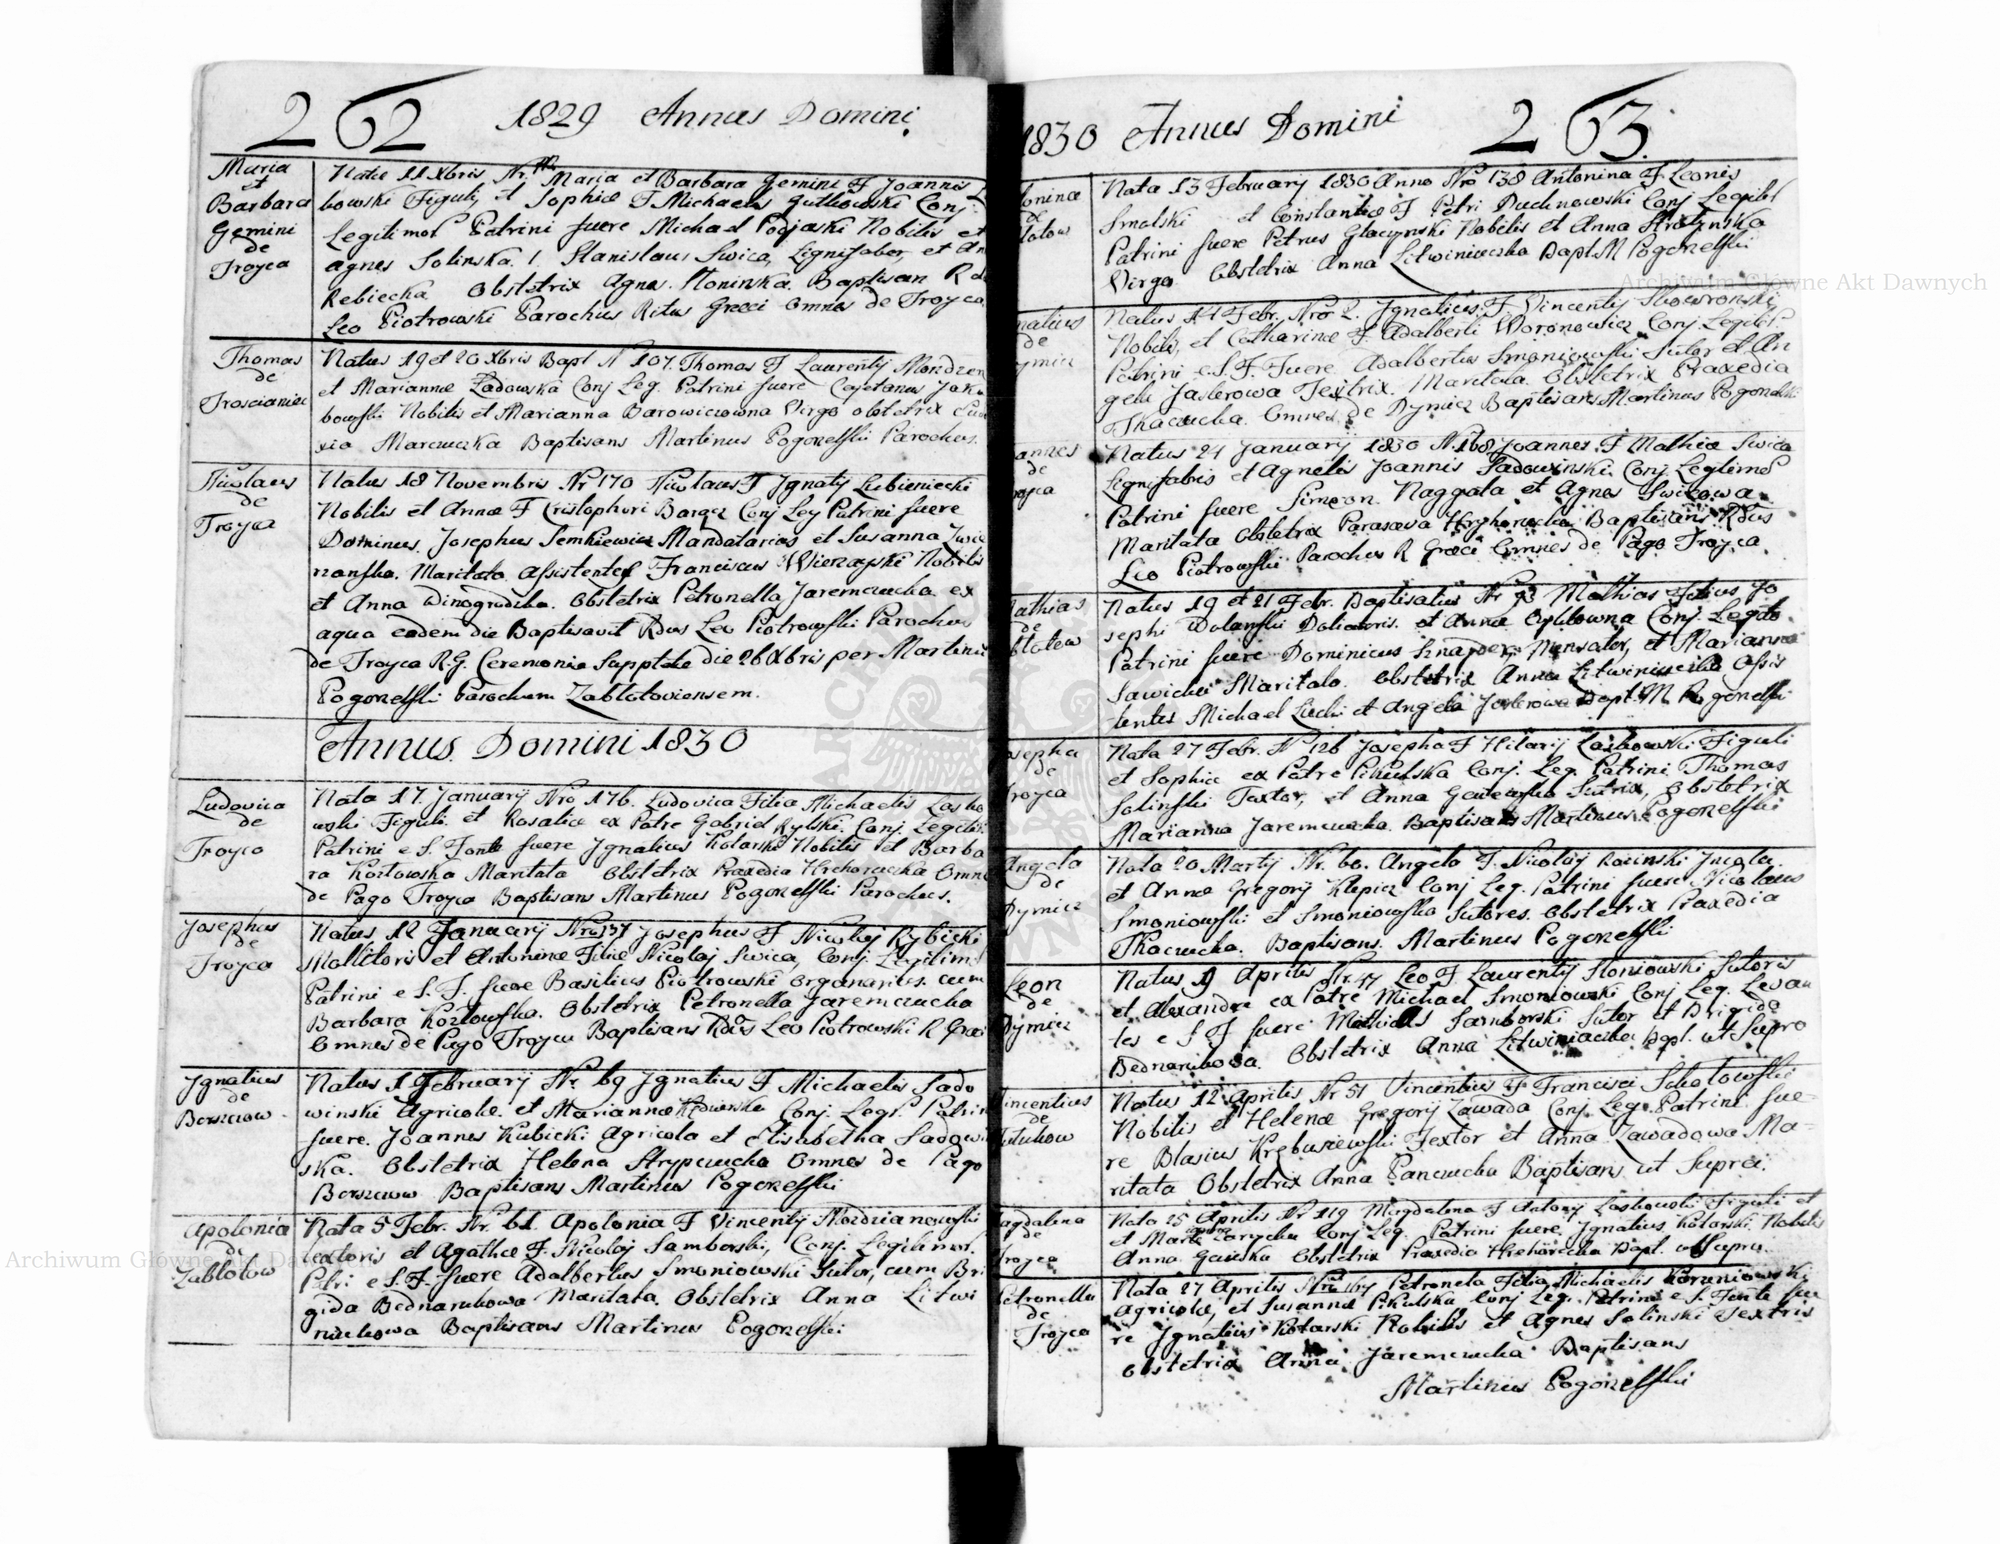 262 1829 Annus Domini
Maria
et
Barbara
Gemini
de
Troyca
Natæ 11 Xbris Nr. Maria et Barbara Gemini F Joannis
bowski Figuli, et Sophiæ F Michaelis Gutkowski Conj.
Legitimor Patrini fuere Michael Podjaski Nobilis et
Agnes Solinska. 1. Stanislaus Swica, Lignifaber, et An
Rebiecka Obstetrix Agnes Baptisans R
Leo Piotrowski Parochus Ritus Græci Omnes de Troyca
Thomas
de
Troscianiec
Natus 19 et 20 Xbris Bapt N 107. Thomas F Laurentij
et Mariannæ Zadowska Conj Leg. Patrini fuere Cajetanus Jaku
bowski Nobilis et Marianna Barowiczowna Virgo obstetrix
xia Marczuczka Baptisans Martinus Pogonelski Parochus.
Nicolaus
de
Troyca
Natus 18 Novembris Nr 170 Nicolaus F Ignatij Lubieniecki
Nobilis et Annæ F Cristophori Barącz Conj Leg Patrini fuere
Dominus Josephus Semkiewicz Mandatarius et Susanna
nonska. Maritata Assistentes Franciscus Wierzayski Nobilis
et Anna Winogrodzka. Obstetrix Petronella Jaremczucka ex
aqua eadem die Baptisavit Rdus Leo Piotrowski Parochus
de Troyca R.G. Ceremonia Supptæ die 26 Xbris per Martinu
Pogonelski Parochum Zablotoviensem.
Annus Domini 1830
Ludovica
de
Troyca
Nata 17. January Nro 176. Ludovica Filia Michaelis Lasko
wski Figuli et Rosaliæ ex Patre Gabriel Rylski. Conj. Legitim
Patrini e S. Fonte fuere Ignatius Kotarski Nobilis et Barba
ra Kozlowska Maritata Obstetrix Praxedia Hrehorczucka Omne
de Pago Troyca Baptisans Martinus Pogonelski Parochus.
Josephus
de
Troyca
Natus 12 January Nro 137 Josephus F Nicolaj Rybicki
Mollitoris et Antoninæ Filiæ Nicolaj Swica, Conj. Legitim
Patrini e S. F. fuere Basilius Piotrowski Organarius cum
Barbara Kozlowska. Obstetrix Petronella Jaremczucka
Omnes de Pago Troyca Baptisans Rdus Leo Piotrowski R Græci
Ignatius
de
Borszczow
Natus 1 February Nr 69 Ignatius F Michaelis Sado
winski Agricolæ et Mariannæ Conj. Legi. Patrin
fuere. Joannes Kubicki Agricola et Elisabetha Sadowi
ska. Obstetrix Helena Strypczucka Omnes de Pago
Borszczow Baptisans Martinus Pogonelski
Apolonia
de
Zablotow
Nata 5 Febr. Nr. 61. Apolonia F Vincentij Modzianowski
textoris et Agathæ F. Nicolaj Samborski, Conj. Legitimor.
Patri e S. F. fuere Adalbertus Smoniowski Sutor, cum Bri
gida Bednarukowa Maritata. Obstetrix Anna Litwi
niuckowa Baptisans Martinus Pogonelski
1830 Annus Domini 263.
toninæ
de
blotow
Nata 13 February 1830 Anno Nro 138 Antonina F Leonis
Smolski et Constantiæ F Petri Duchnowski Conj Legitim
Patrini fuere Petrus Gloczynski Nobilis et Anna
Virgo Obstetrix Anna Litwiniuczka Bapt. M Pogonelski
natius
de
ymicz
Natus 14 Febr. Nro 2. Ignatius F. Vincentij Skowronski
Nobilis, et Catharinæ F. Adalberti Woronowicz Conj. Legitim.
Patrini e S. F. Fuere Adalbertus Smoniowski Sutor et An
gela Jaslerowa Textrix. Maritata. Obstetrix Praxedia
Tkaczucka. Omnes de Dymicz Baptisans Martinus Pogonelski
annes
de
oyca
Natus 24 January 1830 N. 168 Joannes F Mathiæ Swica
Lignifabris et Agnetis Joannis Sadowinski Conj Legitimor
Patrini fuere Simeon Naggala et Agnes Swicowa
Maritata Obstetrix Parasæva Hryhorucka Baptisans Rdus
Leo Piotrowski Parochus R Græci Omnes de Pago Troyca.
athias
de
blotow
Natus 19 et 21 Febr. Baptisatus Nr 93 Mathias Filius Jo
sephi Wolanski Doliatoris. et Annæ Conj. Legitim
Patrini fuere Dominicus Sznayder, Mensator, et Marianna
Sawicka Maritata. Obstetrix Anna Litwiniucka Assis
tentes Michael et Angela Jaslerowa Bapt. M Pogonelski
osepha
de
royca
Nata 27 Febr. N 126 Josepha F Hilarij Laskowski Figuli
et Sophiæ ex Patre Pikulska Conj. Leg. Patrini Thomas
Solinski Textor, et Anna Sutrix, Obstetrix
Marianna Jaremczucka Baptisans Martinus Pogonelski
Angela
de
Dymicz
Nata 20 Martij Nr. 60. Angela F. Nicolaj Rozinski
et Annæ Gregorij Klepicz Conj Leg. Patrini fuere Nicolaus
Smoniowski et Smoniowska Sutores. Obstetrix Praxedia
Tkaczucka. Baptisans. Martinus Pogonelski
Leon
de
Dymicz
Natus 9 Aprilis Nr. 47 Leo F Laurentij Sloniowski Sutoris
et Alexandræ ex Patre Michael Smoniowski Conj Leg. Levan
tes e S F fuere Mathias Samborski Sutor et Brigida
Bednarukowa. Obstetrix Anna Litwiniucka Bapt. ut Supra
incentius
de
Natus 12 Aprilis Nr 51 Vincentius F Francisci Schotowski
Nobilis et Helenæ Gregorij Zawada Conj Leg. Patrini fue-
re Blasius Krębuszewski Textor et Anna Zawadowa Ma-
ritata Obstetrix Anna Panczucka Baptisans ut Supra.
agdalena
de
royca
Nata 25 Aprilis Nr 119 Magdalena F Antonij Laskowski Figuli et
et Conj Leg. Patrini fuere Ignatius Kotarski Nobilis
Anna Obstetrix Praxedia Hrehorucka Bapt. ut Supra.
etronella
de
Troyca
Nata 27 Aprilis Nro 164 Petronela Filia Michaelis Koruniowski
Agricolæ, et Susannæ Pikulska Conj Leg. Patrini e S. Fonte fue
re Ignatius Kotarski Nobilis et Agnes Solinski Textris
obstetrix Anna Jaremczucka Baptisans
Martinus Pogonelski
Archiwum Główne Akt Dawnych
Archiwum Główne Akt Dawnych